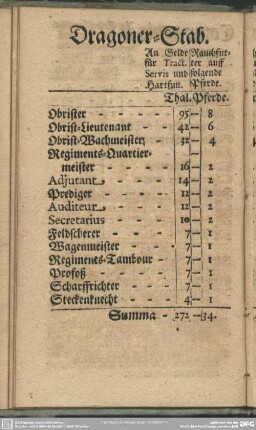 Dragoner-Stab.
An Gelde Rauchfut-
für Tract. ter auff
Servis und folgende
Hartfutt. Pferde.
Thal. Pferde.
Obrister - - - - 95 - 8
Obrist-Lieutenant - - 42 - 6
Obrist-Wachmeister - - 32 - 4
Regiments-Quartier-
meister - - - 16 - 2
Adjutant - - - - 14 - 2
Prediger - - - - 12 - 2
Auditeur - - - - 12 - 2
Secretarius - - - 10 - 2
Feldscherer - - - 7 - 1
Wagenmeister - - - 7 - 1
Regiments-Tambour - 7 - 1
Profoß - - - - 7 - 1
Scharffrichter - - - 7 - 1
Steckenknecht - - - 4 - 1
Summa - 272 - 34.
DFG